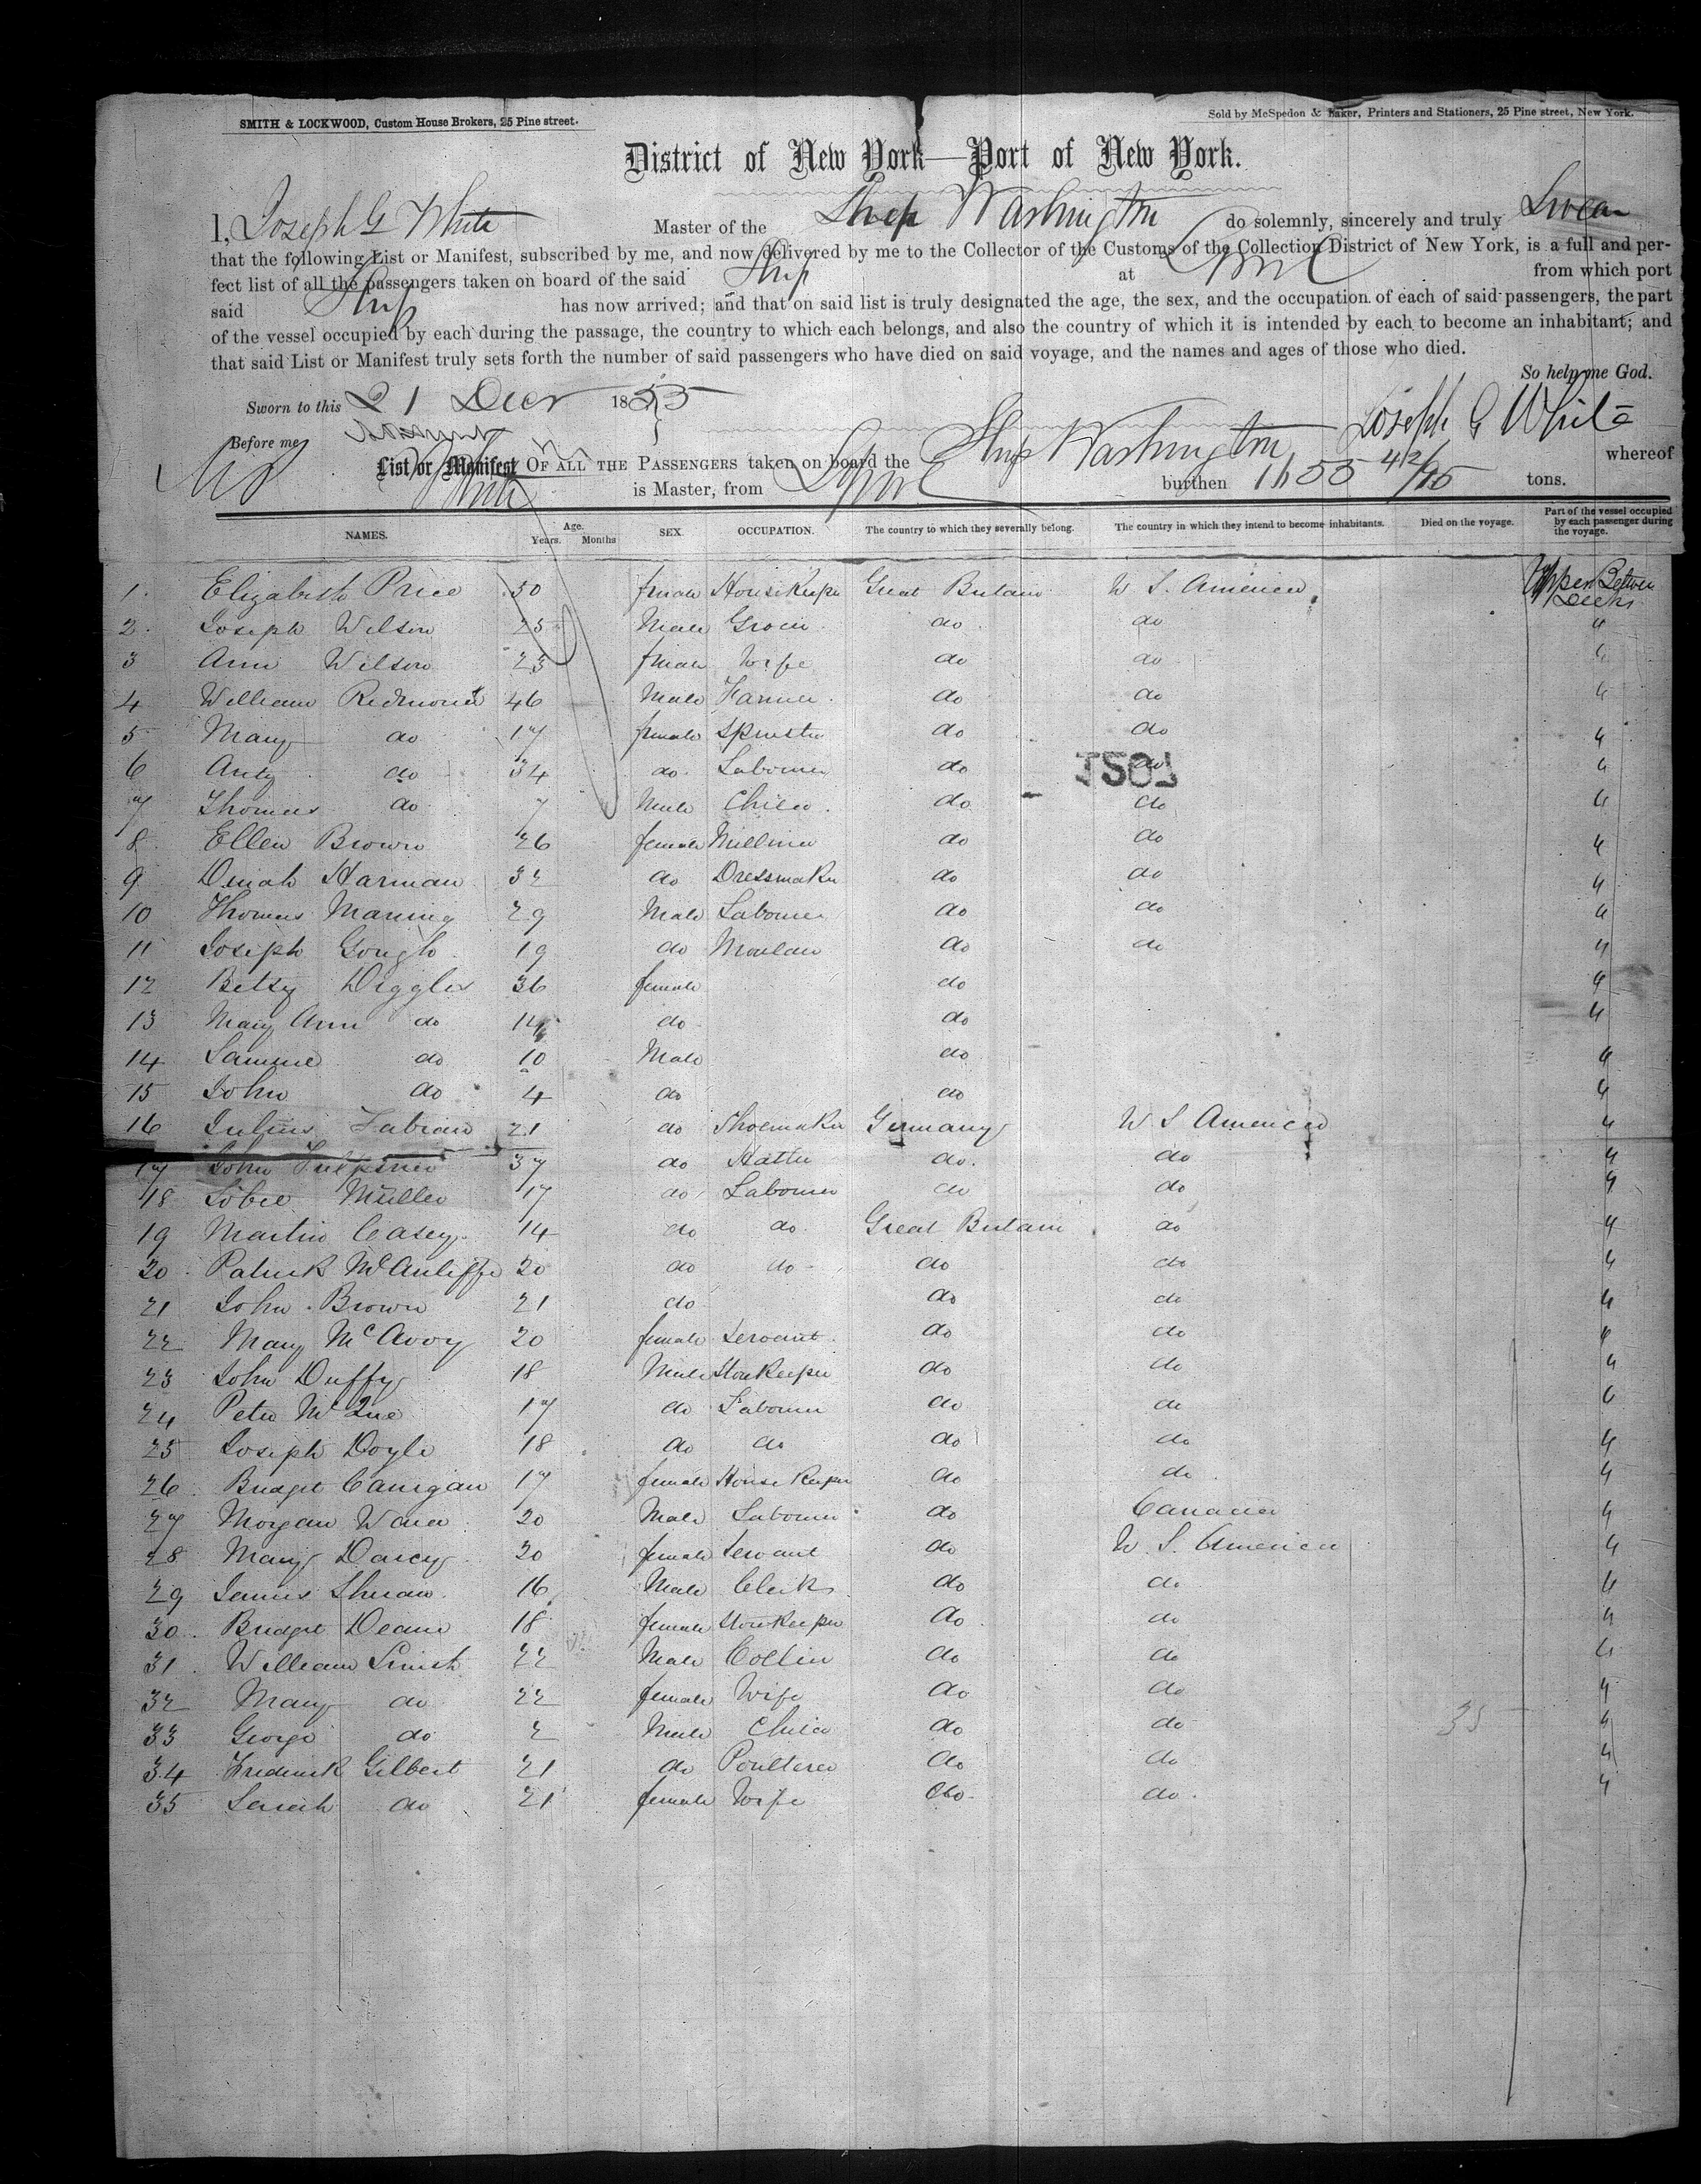 SMITH & LOCKWOOD, Custom House Brokers, 25 Pine street.
Sold by McSpedon & Baker, Printers and Stationers, 25 Pine street, New York.
District of New York—Port of New York.
I, Joseph G White Master of the Ship Washington do solemnly, sincerely and truly Swear
that the following List or Manifest, subscribed by me, and now delivered by me to the Collector of the Customs of the Collection District of New York, is a full and per-
fect list of all the passengers taken on board of the said Ship at Lpool from which port
said Ship has now arrived; and that on said list is truly designated the age, the sex, and the occupation of each of said passengers, the part
of the vessel occupied by each during the passage, the country to which each belongs, and also the country of which it is intended by each to become an inhabitant; and
that said List or Manifest truly sets forth the number of said passengers who have died on said voyage, and the names and ages of those who died.
So help me God.
Sworn to this 21 Decr 1855
Joseph G White
Before me
List or Manifest OF ALL THE PASSENGERS taken on board the Ship Washington whereof
White is Master, from Lpool burthen 1655 42/95 tons.
NAMES. Age. Years. Months SEX. OCCUPATION. The country to which they severally belong. The country in which they intend to become inhabitants. Died on the voyage. Part of the vessel occupied by each passenger during the voyage.
1. Elizabeth Price 50 female Housekeeper Great Britain U S. America Upper Between Decks
2. Joseph Wilson 25 Male Groom do do "
3 Ann Wilson 23 female Wife do do "
4 William Redmond 46 Male Farmer do do "
5 Mary do 17 female Spinster do do "
6 Andy do 34 do Labourer do do "
1507
7 Thomas do 7 Male Child do do "
8 Ellen Brown 26 female Milliner do do "
9 Dinah Harman 32 do Dressmaker do do "
10 Thomas Maning 29 Male Labourer do do "
11 Joseph Gough 19 do do do "
12 Betsy Diggles 36 female do "
13 Mary Ann do 14 do do "
14 Samuel do 10 Male do "
15 John do 4 do do "
16 Julius Fabian 21 do Shoemaker Germany U S America "
17 John 37 do Hatter do. do "
18 Müller 17 do Labourer do do "
19 Martin Casey 14 do do Great Britain do "
20 Patrick McAuliffe 20 do do do do "
21 John Brown 21 do do do "
22 Mary McAvoy 20 female Servant do do "
23 John Duffy 18 Male Storekeeper do do "
24 Peter McQue 17 do Labourer do do "
25 Joseph Doyle 18 do do do do "
26 Bridget Carrigan 17 female House Keeper do do "
27 Morgan Ward 20 Male Labourer do Canada "
28 Mary Darcy 20 female Servant do U. S. America "
29 James 16 Male Clerk do do "
30 Bridget Deane 18 female Storekeeper do do "
31 William Smith 22 Male Collier do do "
32 Mary do 22 female Wife do do "
33 George do 2 Male Child do do 35 "
34 Frederick Gilbert 21 do Poulterer do do "
35 Sarah do 21 female Wife do do "